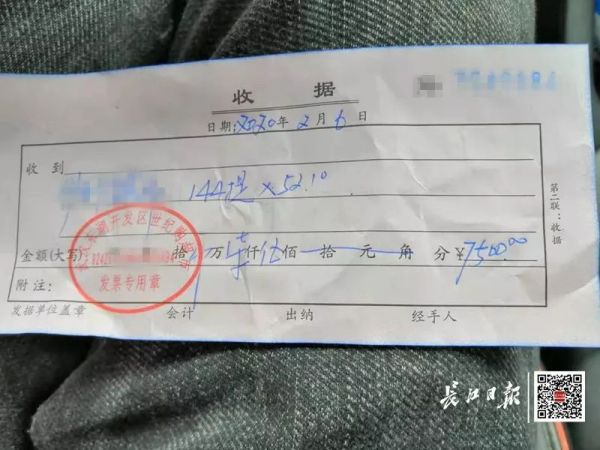 收 据
日期:2020年 2 月 6 日
收 到
144提×52.10
金额(大写) 拾 万 柒仟伍佰 拾 元 角 分￥7500.00
开发区世纪
发票专用章
附注:
发据单位盖章 会计 出纳 经手人
第二联:收据
长江日报